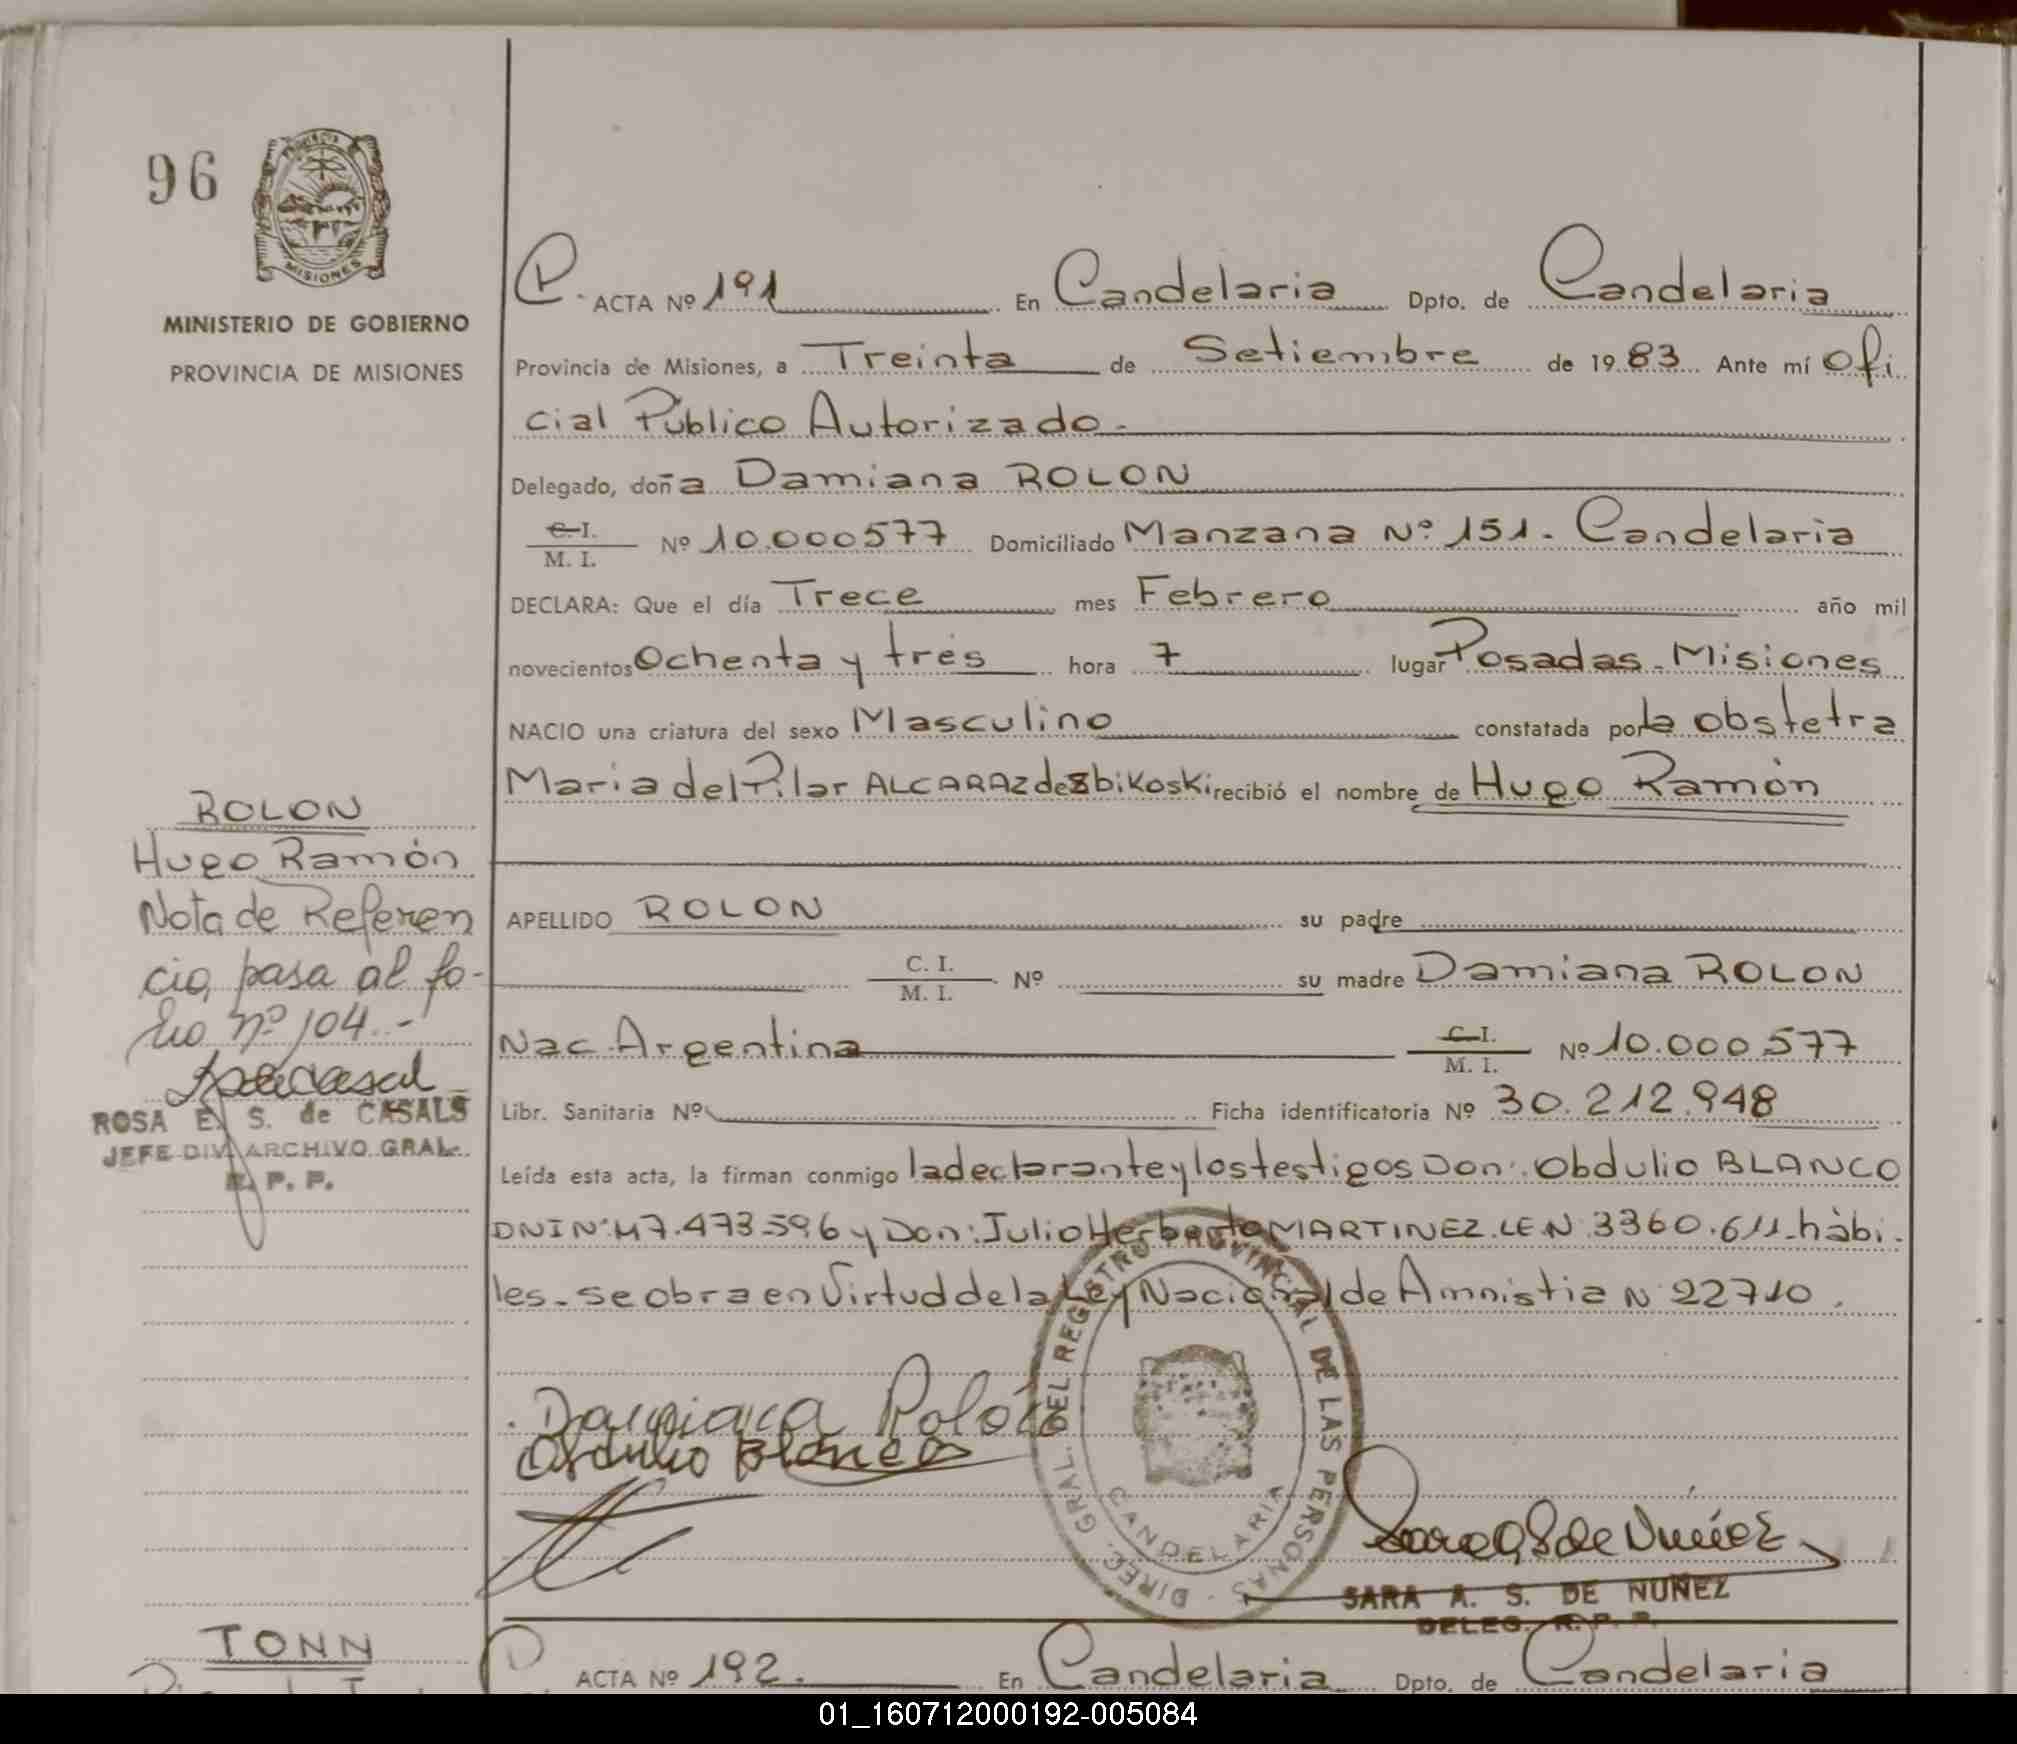 96
PROVINCIA
MISIONES
MINISTERIO DE GOBIERNO
PROVINCIA DE MISIONES
P. ACTA Nº 191 En Candelaria Dpto. de Candelaria
Provincia de Misiones, a Treinta de Setiembre de 1983 Ante mí Ofi
cial Público Autorizado.
Delegado, doña Damiana ROLON
C. I.
M. I. Nº 10.000577 Domiciliado Manzana Nº 151. Candelaria
DECLARA: Que el día Trece mes Febrero año mil
novecientos Ochenta y tres hora 7 lugar Posadas. Misiones
NACIO una criatura del sexo Masculino constatada por la obstetra
Maria del Pilar ALCARAZ de Zbikoski recibió el nombre de Hugo Ramón
APELLIDO ROLON su padre
C. I.
M. I. Nº su madre Damiana ROLON
Nac. Argentina C. I.
M. I. Nº 10.000.577
Libr. Sanitaria Nº Ficha identificatoria Nº 30.212.948
Leída esta acta, la firman conmigo la declarante y los testigos Don: Obdulio BLANCO
DNI Nº 47.473.596 y Don: Julio Herberto MARTINEZ. LE. N. 3360.611. hábi.
les. se obra en Virtud de la Ley Nacional de Amnistia N 22710.
Damiana Rolón
Obdulio Blanco
DIREC. GRAL. DEL REGISTRO PROVINCIAL DE LAS PERSONAS
CANDELARIA
Sara A S de Nuñez
SARA A. S. DE NUÑEZ
DELEG. R. P. P.
ROLON
Hugo Ramón
Nota de Referen
cia, pasa al fo-
lio nº 104.-
ROSA E. S. de CASALS
JEFE DIV. ARCHIVO GRAL.
R. P. P.
TONN
P ACTA Nº 192. En Candelaria Dpto. de Candelaria
01_160712000192-005084